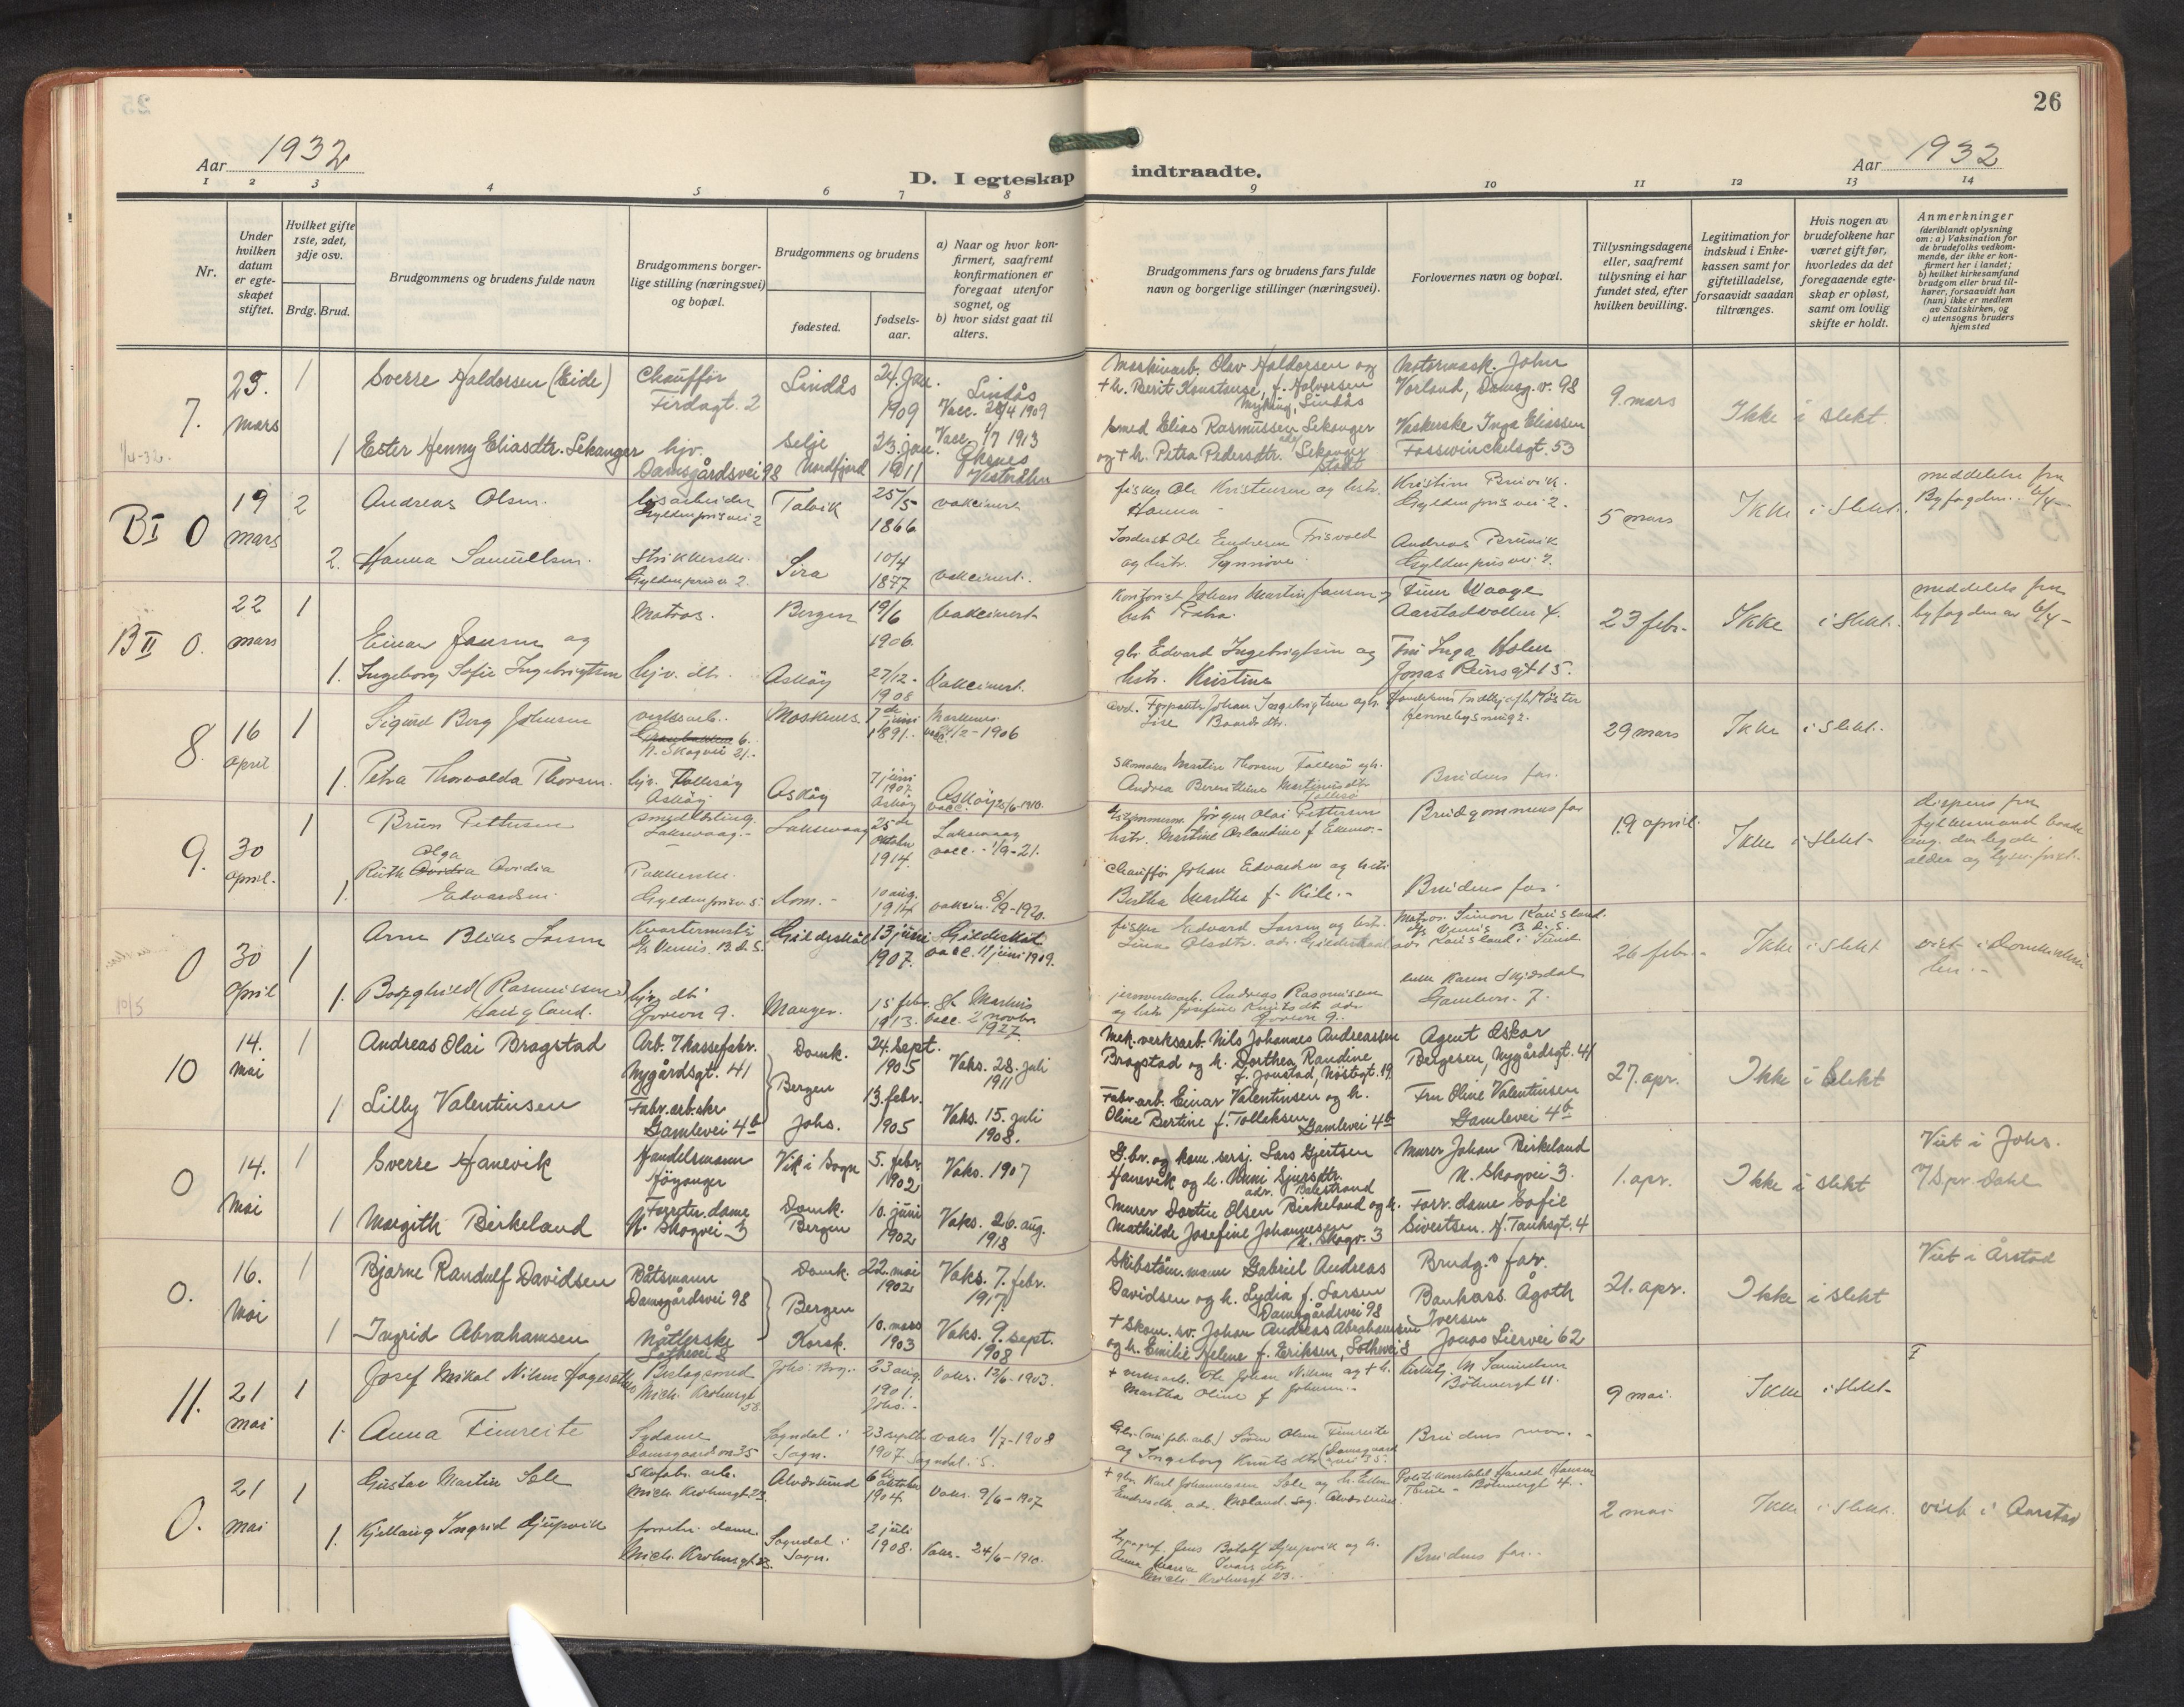 26
Aar 1932
D. I egteskap indtraadte.
Aar 1932
1 2 3 4 5 6 7 8 9 10 11 12 13 14
Nr.
Under hvilken datum er egteskapet stiftet.
Hvilket gifte 1ste, 2det, 3dje osv.
Brdg. Brud.
Brudgommens og brudens fulde navn
Brudgommens borgerlige stilling (næringsvei) og bopæl.
Brudgommens og brudens
fødested.
fødselsaar.
a) Naar og hvor konfirmert, saafremt konfirmationen er foregaat utenfor sognet, og
b) hvor sidst gaat til alters.
Brudgommens fars og brudens fars fulde navn og borgerlige stillinger (næringsvei).
Forlovernes navn og bopæl.
Tillysningsdagene eller, saafremt tillysning ei har fundet sted, efter hvilken bevilling.
Legitimation for indskud i Enkekassen samt for giftetilladelse, forsaavidt saadan tiltrænges.
Hvis nogen av brudefolkene har været gift før, hvorledes da det foregaaende egteskap er opløst, samt om lovlig skifte er holdt.
Anmerkninger (deriblandt oplysning om: a) Vaksination for de brudefolks vedkommende, der ikke er konfirmert her i landet; b) hvilket kirkesamfund brudgom eller brud tilhører, forsaavidt han (hun) ikke er medlem av Statskirken, og c) utensogns bruders hjemsted
7.
1/4-32.
25. mars
1
Sverre Haldorsen (Eide)
Chauffør
Firdagt. 2
Lindås
24. Jan. 1909
Lindås
Vacc. 28/4 1909
Maskinarb. Olav Haldorsen og
+ h. Berit Konstanse, f. Halvorsen
Myking, Lindås
Motormask. John
Vorland, Damsg.v. 98
9. mars
Ikke i slekt.
1
Ester Henny Eliasdtr. Sekanger
hjv.
Damsgårdsvei 98
Selje
Nordfjord
23. jan. 1911
Vacc. 1/7 1913
Øksnes
Vesterålen
smed Elias Rasmussen Sekanger
og + h. Petra Pedersdtr. Sekanger
Stadt
Vaskerske Inga Eliassen
Fosswinckelsgt. 53
B I 0
19 mars
2
Andreas Olsen.
Gyldenprisvei 2
Talvik
25/5 1866
vakcinert
fisker Ole Kristensen og hstr.
Hanna
Kristine Brüvik.
Gyldenprisvei 2.
5 mars
Ikke i Slekt.
meddelelse fra
Byfogden. 6/4-
2.
Hanna Samuelsen.
Strikkerske.
Gyldenprisv. 2.
Sira
10/4 1877
vakcinert.
og hstr. Synnöve
Andreas Brüvik
Gyldenprisvei 2.
B II 0.
22 mars
1
Einar Jansen og
Matros.
Bergen
19/6 1906.
Vakcinert
Kontorist Johan Martin Jansen og
Finn Waage
Aarstadvollen 4.
23 febr.
Ikke i slekt.
meddelels fra
byfogden av 6/4-
1.
Ingeborg Sofie Ingebrigtsen
hjv. dtr.
Askøy
27/12 - 1908
Vakcinert.
gbr. Edvard Ingebrigtsen og
hstr. Kristine
Fru Inga Holen
Jonas Reinsgt 15.
8.
16 April
1
Sigurd Berg Johnsen
verksarb.
N. Skogvei 21.
Moskenes
7de juni 1891.
Moskenes
1906
29 mars
Ikke i Slekt.
1.
Petra Thorvalda Thorsen.
hjv. Follesøy
Askøy
Askøy
7 juni 1907.
Askøy
Askøy
vacc. 25/6-1910.
Skomaker Martin Thorsen Follesø og h.
Andrea Berentine Martinusdtr
Follesø
Brudens far.
9.
30 april.
1
Brun Pettersen
Laksevaag.
Laksevaag
25de Oktober 1914.
Laksevaag
vacc. - 1/9-21.
Jørgen Olai Pettersen
Brudgommens far
19 april.
Ikke i slekt.
dispens fra
1.
Ruth Olga Ovidia
Edvardsen
Pakkerske.
Gyldenprisv. 5.
Dom.
10 aug. 1914
vakcin. 8/9-1920.
Chauffør Johan Edvardsen og hstr.
Bertha Martha f. Kile.
Brudens far.
0
10/5
30 April
1
Arne Blias Larsen
Kvartermester
Gildeskål
13 juni 1907.
Gildeskål
vacc. 11 juni 1909.
fisker Edvard Larsen og hstr.
Matros. Simon Karisland.
26 febr.
Ikke i slekt
viet i Domkirken
1.
Borghild (Rasmussen)
Haugland.
hjv. dtr
Manger.
15 febr. 1913.
St Markus
vacc. 2 novbr. 1927.
Andreas Rasmussen
10
14. mai
1
Andreas Olai Bragstad
Arb. i kassefabr.
Nygårdsgt. 41
Domk.
Bergen
24. sept. 1905
Vaks. 28. juli 1911
Mek. verksarb. Nils Johannes Andreassen
Bragstad og h. Dorthea Randine
f. Jonstad, Nöstegt. 19
Agent Oskar
Bergesen, Nygårdsgt. 41
27. apr.
Ikke i slekt
1
Lilly Valentinsen
Fabr. arb.ske
Gamlevei 4b
Johs.
13. febr. 1905
Vaks. 15. juli 1908.
Fabr. arb. Einar Valentinsen og h.
Oline Bertine f. Tolleksen
Gamlevei 4b
Fru Oline Valentinsen
Gamlevei 4b
0
14. Mai
1
Sverre Hanevik
Handelsmann
Höyanger
Vik i Sogn
5. febr. 1902
Vaks. 1907
G.br. og kom. sersj. Lars Gjertsen
Hanevik og h. Unni Sjursdtr.
adr. Balestrand
Murer Johan Birkeland
N. Skogvei 3.
1. apr.
Ikke i slekt
Viet i Johs.
1
Margith Birkeland
Forretn. dame
N. Skogvei 3
Domk.
Bergen
10. juni 1902
Vaks. 26. aug. 1918
Murer Dortin Olsen Birkeland og h.
Mathilde Josefine Johannesen
N. Skogv. 3
Forr. dame Sofie
Sivertsen. H. Tanksgt. 4
0.
16. Mai
1
Bjarne Randulf Davidsen
Båtsmann
Damsgårdsvei 98
Domk.
Bergen
22. mai 1902
Vaks. 7. febr. 1917.
Skibstöm.mann Gabriel Andreas
Davidsen og h. Lydia f. Larsen
Damsgårdsvei 98
Brudg.s far.
21. apr.
Ikke i slekt
Viet i Årstad
1
Ingrid Abrahamsen
Såtlevei 8
Korsk.
10. mars 1903
Vaks. 9. sept. 1908
+ Skom. sv. Johan Andreas Abrahamsen
og h. Emilie Helene f. Eriksen
Bankass. Ågoth
Iversen
Jonas Liesvei 62
11.
21 mai
1
Josef Mikal Nilsen
Beslagsmed
Mich. Krohnsgt 58.
23 aug. 1901.
Johs.
Vaks. 13/6-1903.
+ verksarb. Ole Johan Nilsen og + h.
Martha Oline f Johnsen
Böhmergt 11.
9 mai.
Ikke i slekt
1.
Anna Fimreite
Sydame
Damsgaardsv 35
Sogndal i
Sogn.
23 septbr 1907
vaks 1/7-1908
Sogndal. S.
Søren Olsen Fimreite
og Ingeborg Knutsdtr
Brudens mor.
0.
21 mai
1
Gustav Martin Sæle
Skofabr. arb.
Mich. Krohnsgt 23.
Alversund
6te Oktober 1904
Vaks. 9/6-1907
+ gbr. Karl Johannessen Sæle og h. Ellen
Politikonstabel Harald Hansen
Böhmergt 4.
2 mai
Ikke i slekt.
viet i Aarstad
1.
Kjellaug Ingrid Djupvik
forretn. dame.
Mich. Krohnsgt 23.
Sogndal i
Sogn.
2 juli 1908.
Vaks. 24/6-1910.
typograf. Jens Botolf Djupvik og h.
Anna Maria Ivarsdtr
Mich. Krohnsgt 23.
Brudens far.